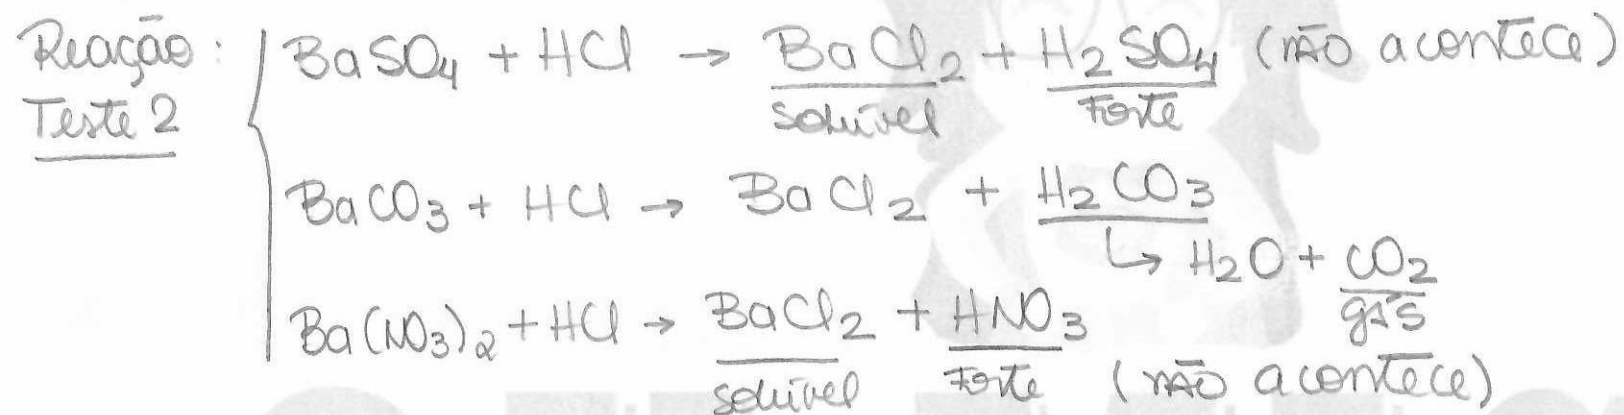 Reação: BaSO4 + HCl → BaCl2 + H2SO4 (não acontece)
Teste 2 solúvel Forte
BaCO3 + HCl → BaCl2 + H2CO3
↳ H2O + CO2
gás
Ba(NO3)2 + HCl → BaCl2 + HNO3
solúvel Forte (não acontece)